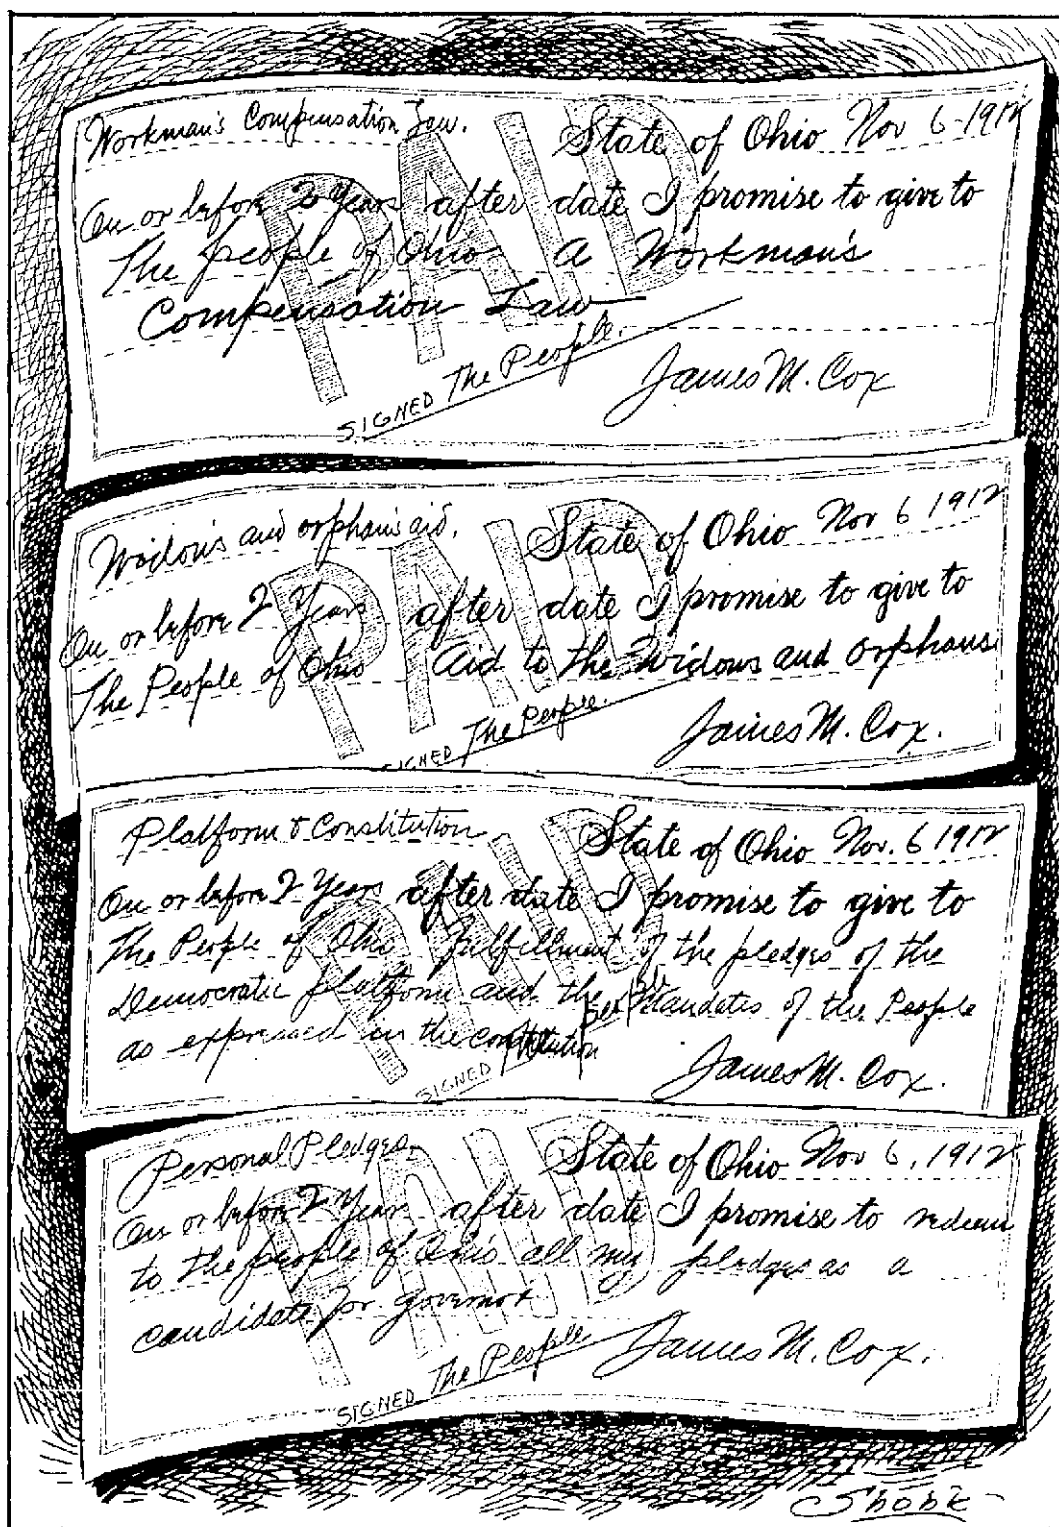 Workman's Compensation Law.
State of Ohio Nov 6-1912
PAID
On or before 2 Years after date I promise to give to
The people of Ohio a Workman's
Compensation Law
SIGNED The People.
James M. Cox
Widows and orphans aid.
State of Ohio Nov 6 1912
PAID
On or before 2 Years after date I promise to give to
The People of Ohio Aid to the Widows and Orphans
SIGNED The People.
James M. Cox.
Platform & Constitution
State of Ohio Nov. 6 1912
PAID
On or before 2 Years after date I promise to give to
The People of Ohio Fulfillment of the pledges of the
Democratic platform and the Mandates of the People
as expressed in the constitution
SIGNED
James M. Cox.
Personal Pledges
State of Ohio Nov 6, 1912
PAID
On or before 2 Years after date I promise to redeem
to the people of Ohio all my pledges as a
candidate for governor
SIGNED The People
James M. Cox.